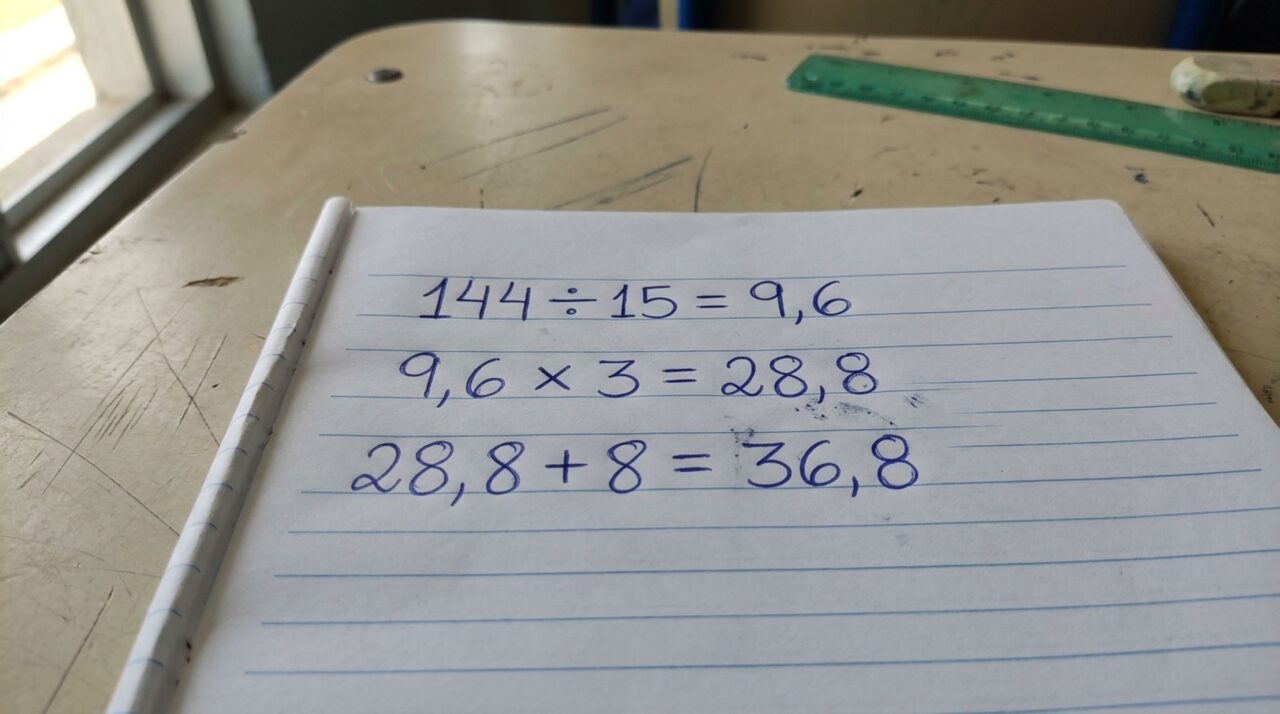 144 ÷ 15 = 9,6
9,6 × 3 = 28,8
28,8 + 8 = 36,8